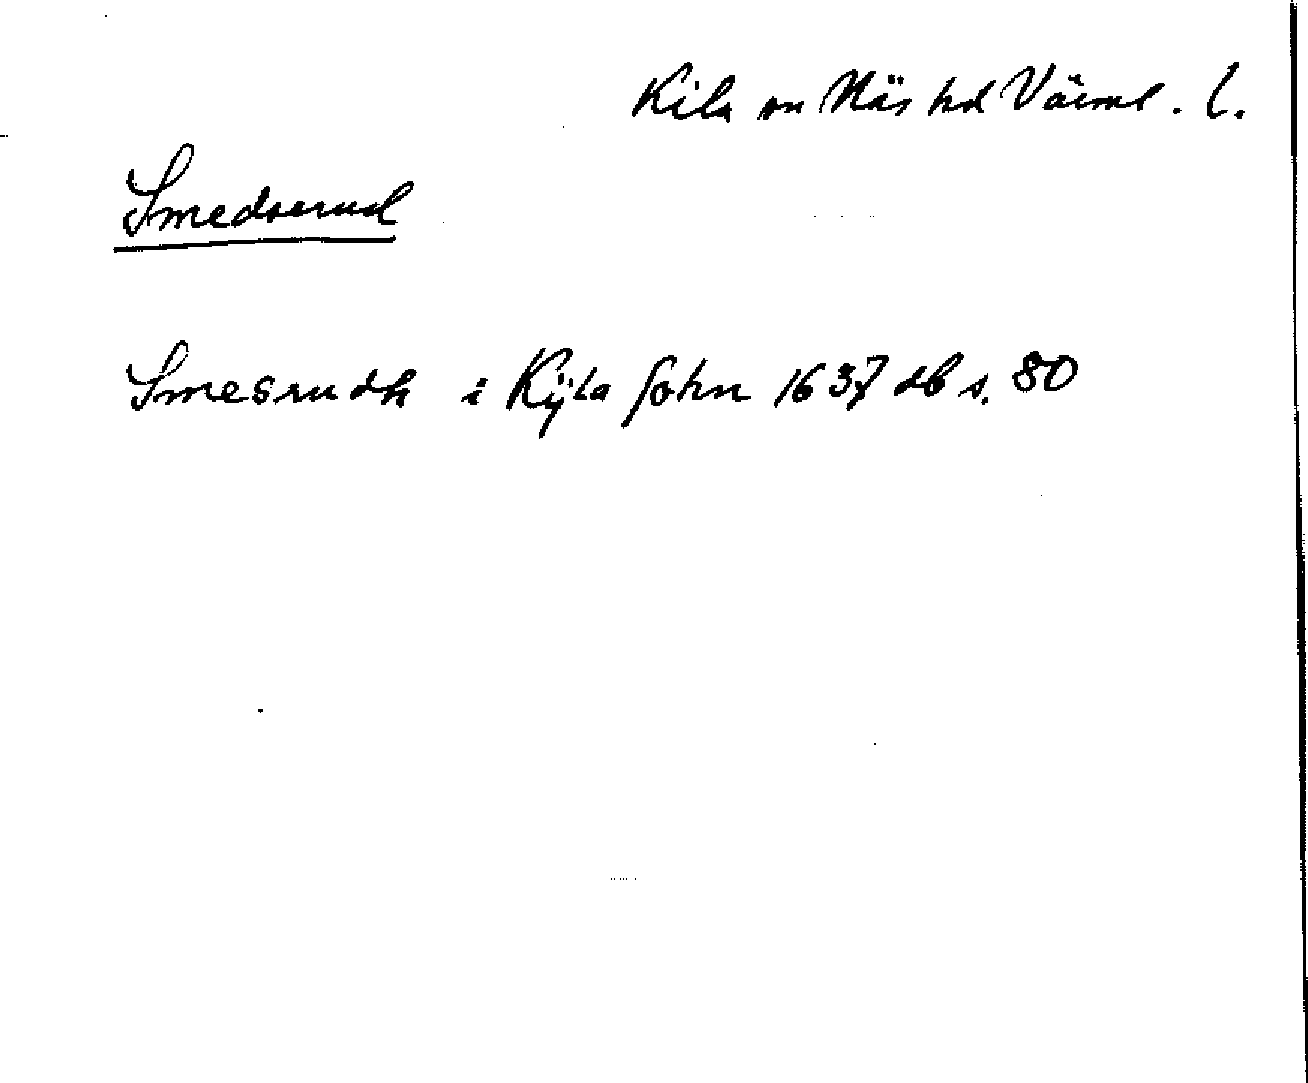 Kila sn Näs hd Värml. l.
Smedserud
Smesrudh i Kÿla sohn 1637 db s. 80